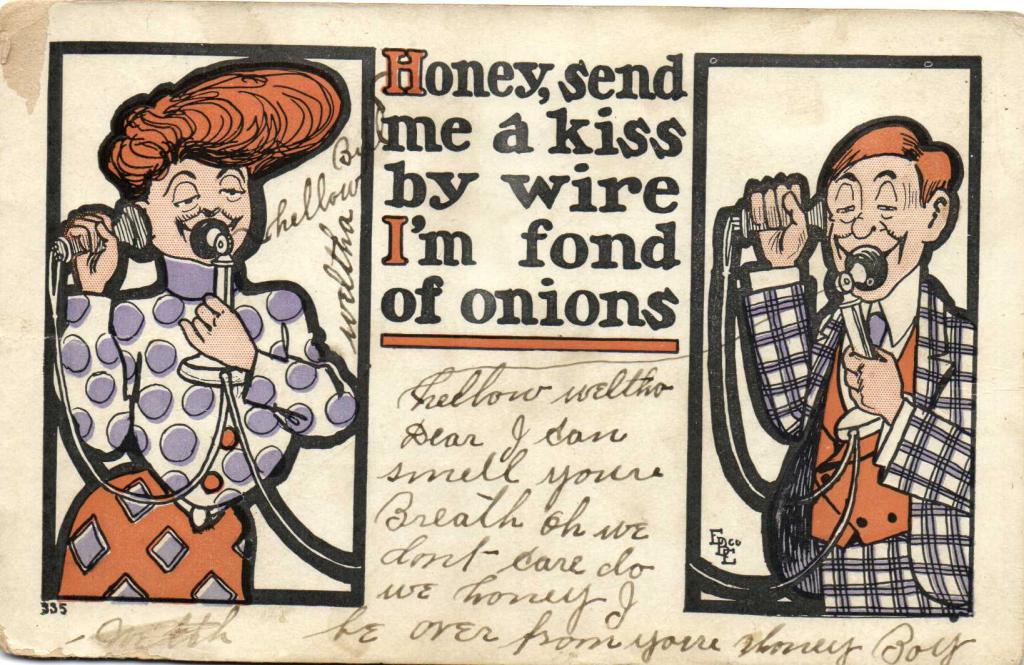 Honey, send
me a kiss
by wire
I'm fond
of onions
hellow Bud
weltha
hellow weltha
Dear I can
smell youre
Breath oh we
dont care do
we honey I
be over from youre Honey Boy
335